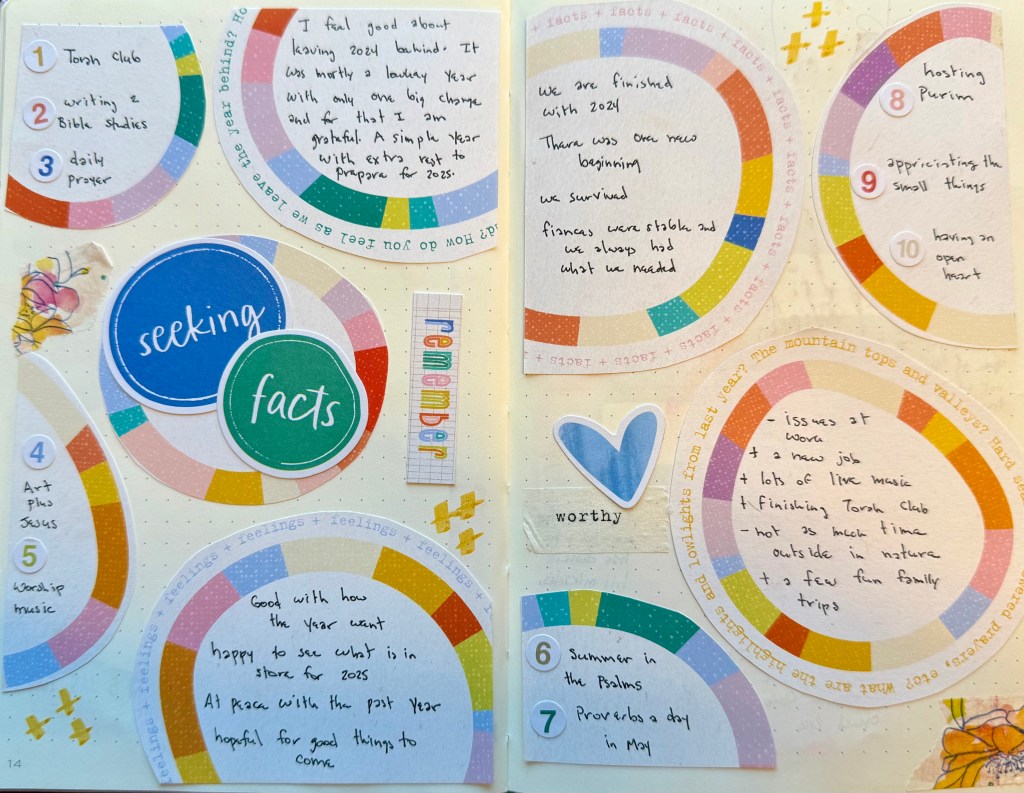 1 Torah Club
2 writing 2
Bible Studies
3 daily
prayer
the year behind? Ho
as we leave
nd? How do you feel
I feel good about
leaving 2024 behind. It
was mostly a lowkey year
with only one big change
and for that I am
grateful. A simple year
with extra rest to
prepare for 2025.
seeking
facts
remember
4
Art
plus
Jesus
5
Worship
music
feelings + feelings + feelings + feelings + feelings + feelings
Good with how
the year went
happy to see what is in
store for 2025
At peace with the past year
hopeful for good things to
come
14
+ facts + facts + facts + facts + facts + facts + facts + facts + facts + facts + facts +
we are finished
with 2024
There was one new
beginning
we survived
fiances were stable and
we always had
what we needed
8 hosting
Purim
9 appriciating the
small things
10 having an
open
heart
worthy
The mountain tops and valleys? Hard sea
wered prayers, etc? What are the highlights and lowlights from last year?
- issues at
work
+ a new job
+ lots of live music
+ finishing Torah Club
- not as much time
outside in nature
+ a few fun family
trips
6 Summer in
the Psalms
7 Proverbs a day
in May